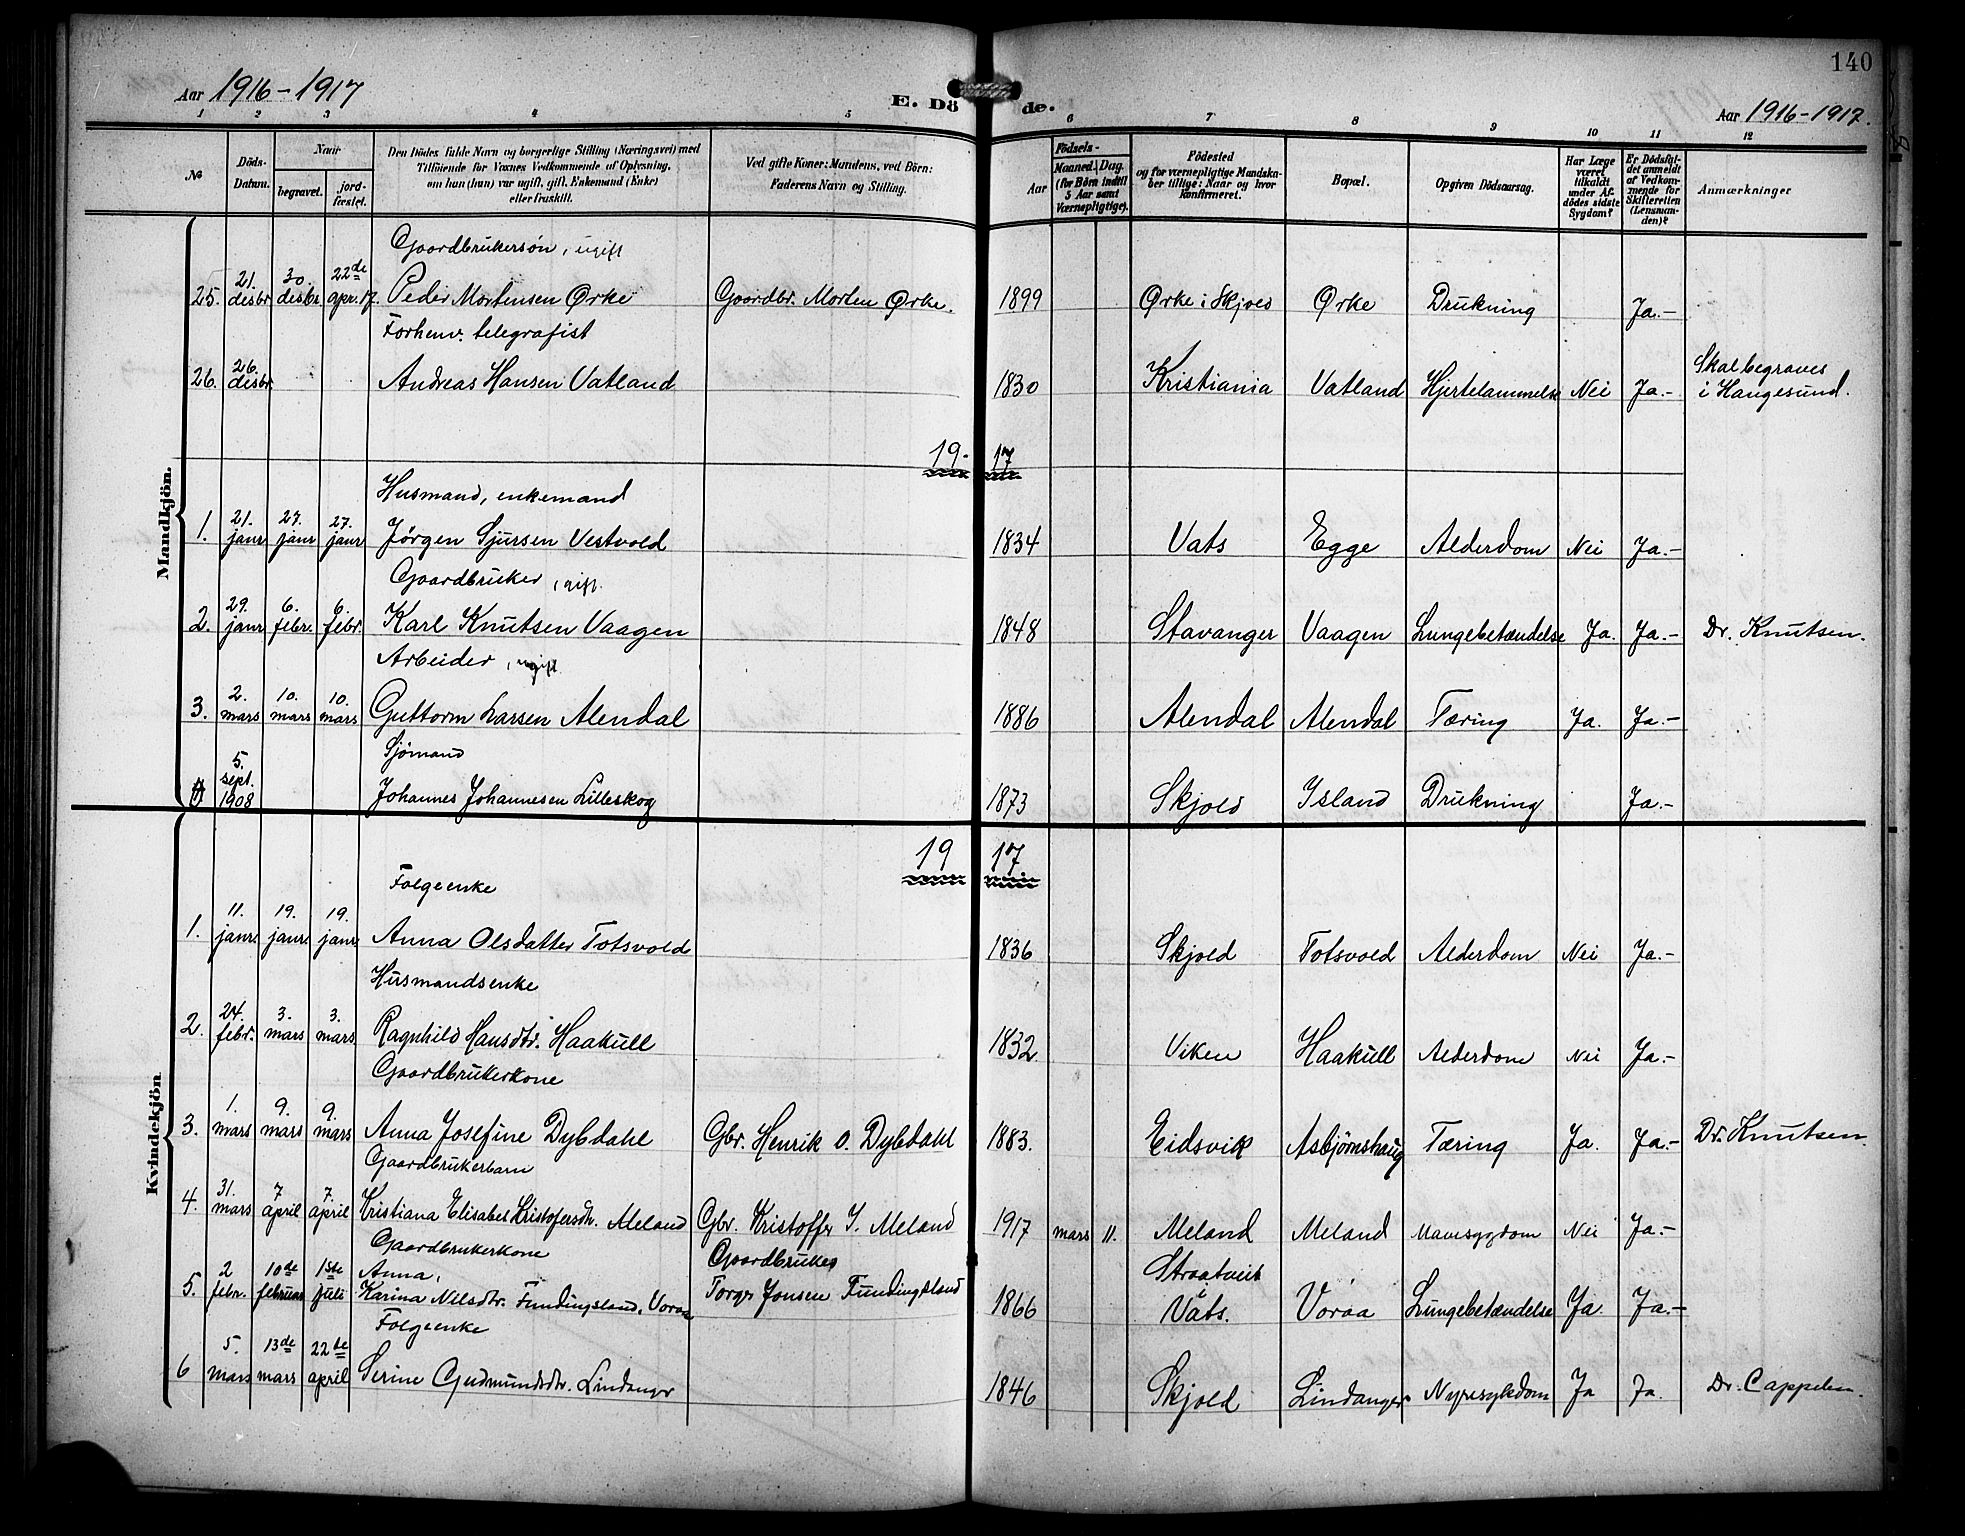 140
Aar 1916-1917
E. Dö
de.
Aar 1916-1917.
1 2 3 4 5 6 7 8 9 10 11 12
No
Döds-
Datum.
Naar
begravet.
jord-
fæstet.
Den Dödes fulde Navn og borgerlige Stilling (Næringsvei) med
Tilföiende for Voxnes Vedkommende af Oplysning,
om han (hun) var ugift, gift, Enkemand (Enke)
eller fraskilt.
Ved gifte Koner: Mandens, ved Börn:
Faderens Navn og Stilling.
Födsels-
Aar
Maaned. Dag.
(for Börn indtil
5 Aar samt
Værnepligtige).
Födested
og for værnepligtige Mandska-
ber tillige: Naar og hvor
konfirmeret.
Bopæl.
Opgiven Dödsaarsag.
Har Læge
været
tilkaldt
under Af-
dödes sidste
Sygdom?
Er Dödsfal-
det anmeldt
af Vedkom-
mende for
Skifteretten
(Lensman-
den)?
Anmærkninger
Mandkjön.
Gaardbrukersøn, ugift
25. 21. desbr 30. desbr 22de apr. 17. Peder Mortensen Ørke Gaardbr. Morten Ørke. 1899 Ørke i Skjold Ørke Drukning Ja.-
Forhenv. telegrafist
26. 26. desbr. Andreas Hansen Vatland 1830 Kristiania Vatland Hjertelammelse Nei Ja.- Skal begraves
i Haugesund.
19- 17
Husmand, enkemand
1. 21. janr 27. janr 27. janr Jørgen Sjursen Vestvold 1834 Vats Egge Alderdom Nei Ja.-
Gaardbruker, gift.
2. 29. janr 6. febr. 6. febr. Karl Knutsen Vaagen 1848 Stavanger Vaagen Lungebetændelse Ja. Ja.- Dr. Knutsen.
Arbeider, ugift
3. 2. mars 10. mars 10. mars Guttorm Larsen Alendal 1886 Alendal Alendal Tæring Ja. Ja.-
Sjömand
5. sept. 1908 Johannes Johannesen Lilleskog 1873 Skjold Island Drukning Ja.-
Kvindekjön
19 17
Følgeenke
1. 11. janr. 19. janr. 19. janr. Anna Olsdatter Totsvold 1836 Skjold Totsvold Alderdom Nei Ja.-
Husmandsenke
2. 24. febr. 3. mars 3. mars Ragnhild Hansdtr. Haakull 1832 Viken Haakull Alderdom Nei Ja.-
Gaardbrukerkone
3. 1. mars 9. mars 9. mars Anna Josefine Dybdahl Gbr. Henrik O. Dybdahl 1883. Eidsvik Asbjørnshaug Tæring Ja. Ja.- Dr. Knutsen.
Gaardbrukerbarn
4. 31. mars 7 april 7. april Kristiana Elisabet Kristofersdtr. Meland Gbr. Kristoffer I. Meland 1917 mars 11. Meland Meland Mavesygdom Nei Ja.-
Gaardbrukerkone
Gaardbruker
5. 2 febr. 10de februar 1ste juli Anna,
Karina Nilsdtr. Fundingsland, Voraa Torger Jonsen Fundingsland 1866 Straatveit
i Vats. Voraa Lungebetændelse Ja. Ja.-
Følgeenke
6 5. mars 13de mars 22de april Serine Gudmundsdtr. Lindanger 1846 Skjold Lindanger Nyresykdom Ja Ja. Dr. Cappelen.